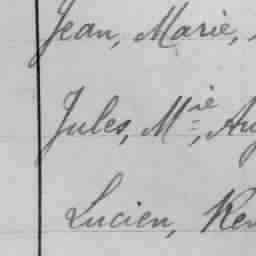 Jean, Marie,
Jules, Mie, Aug
Lucien, Ren